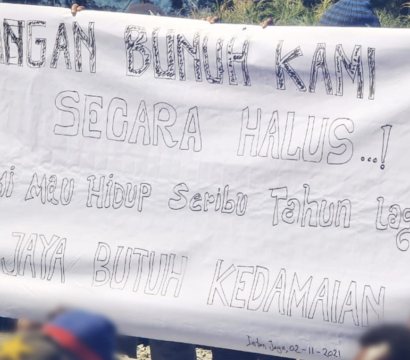 NGAN BUNUH KAMI
SEGARA HALUS...!
Mau Hidup Seribu Tahun lag
JAYA BUTUH KEDAMAIAN
Intan Jaya, 02-11-2021